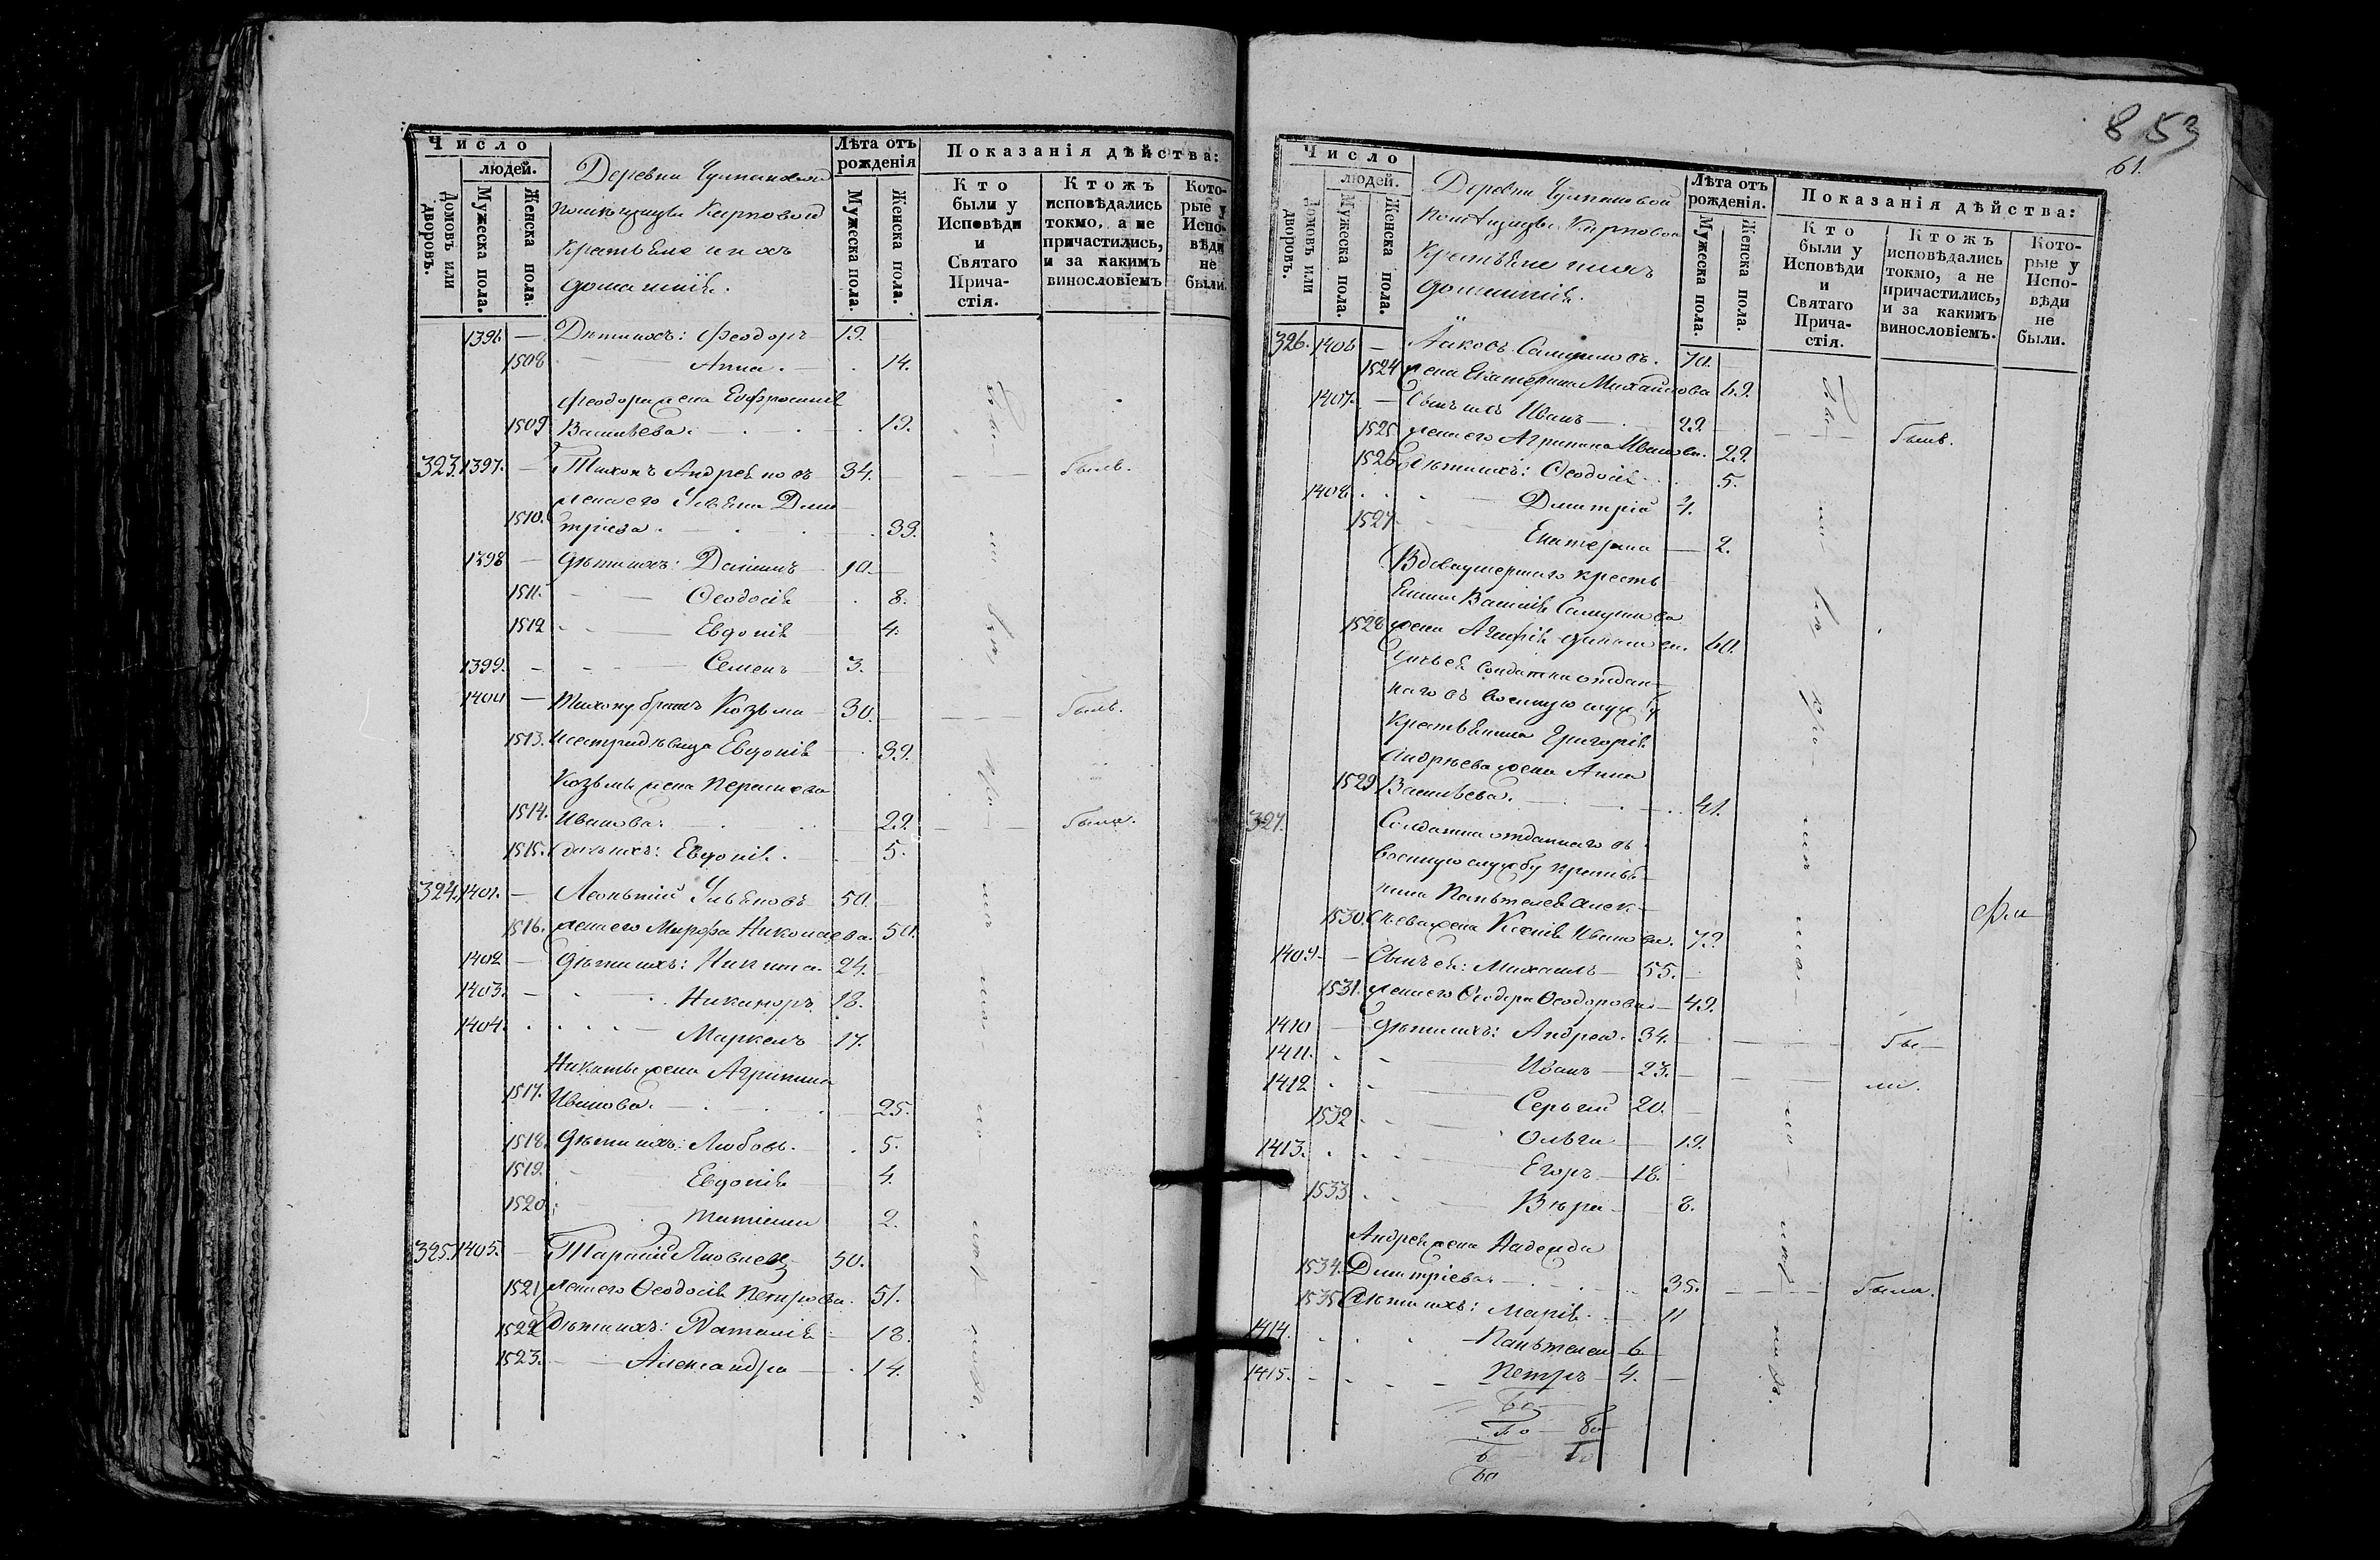 Число
людей.
Домовъ или дворовъ.
Мужеска пола.
Женска пола.
Деревни Чулпановой
помѣщицы Карповой
крестьяне и ихъ
домашнія.
Лѣта отъ рожденія
Мужеска пола.
Женска пола.
Показанія дѣйства:
Кто были у Исповѣди и Святаго Прича-стія.
Ктожъ исповѣдались токмо, а не причастились, и за какимъ винословіемъ
Кото-рые у Испо-вѣди не были.
1396 — Дѣти ихъ: Феодоръ 19.
1508 Анна. 14.
Феодора жена Евфросинія
1509 Васильева. 19.
323. 1397. — Тихонъ Андреяновъ 34. былъ.
жена его Ульяна Дми
1510. тріева. 33.
1398 — дѣти ихъ: Даніилъ 10.
1511. Ѳеодосія 8.
1512 Евдокія 4.
1399. Семенъ 3.
1400 — Тихону братъ Козьма 30. былъ.
1513. Сестра дѣвица Евдокія 39.
Козьмы жена Пераскева
1514. Иванова. 29. была.
1515. дочь ихъ: Евдокія. 5.
324. 1401. — Леонтій Ульяновъ 50.
1516. жена его Марфа Николаева. 50.
1402 — дѣти ихъ: Никита. 24.
1403. Никаноръ 18.
1404. Маркелъ 17.
Никиты жена Агрипина
1517. Иванова. 25.
1518. дѣти ихъ: Любовь. 5.
1519. Евдокія 4.
1520. Татіана 2.
325. 1405. — Тарасій Яковлевъ 50.
1521 жена его Ѳеодосія Петрова. 51.
1522 дѣти ихъ: Наталія 18.
1523. Александра 14.
853
61.
Число
людей.
Домовъ или дворовъ.
Мужеска пола.
Женска пола.
Деревни Чулпановой
помѣщицы Карповой
крестьяне и ихъ
домашнія.
Лѣта отъ рожденія.
Мужеска пола.
Женска пола.
Показанія дѣйства:
Кто были у Исповѣди и Святаго Прича-стія.
Ктожъ исповѣдались токмо, а не причастились, и за какимъ винословіемъ.
Кото-рые у Испо-вѣди не были.
326. 1406 — Яковъ Самуиловъ. 70.
1524 жена Екатерина Михайлова 69.
1407. — Сынъ ихъ Иванъ 29 былъ.
1525. жена его Агрипина Иванова. 29.
1526 дѣти ихъ: Ѳеодосія 5.
1408. Димитрій 4.
1527 Екатерина 2.
Вдова умершаго кресть
янина Василія Самуилова
1528 жена Агафія 60.
Солдатка отдан-
наго въ военную служ
крестьянина Григорія
Андреева жена Анна
1529 Васильева. 41.
327. Солдатка отданнаго въ
военную службу крестья-
нина Пантелея Алек-
1530. сѣева жена Ксенія Иванова. 73.
1409. — Сынъ ея: Михаилъ 55.
1531. жена его Ѳеодора Ѳеодорова 49.
1410 — дѣти ихъ: Андрей. 34. бы-
1411. Иванъ 23. ли.
1412 Сергій 20.
1532 Ольга 19.
1413. Егоръ 18.
1533 Вѣра 8.
Андрея жена Надежда
1534. Димитріева. 35. была.
1535 дѣти ихъ: Марія. 11
1414. Пантелей 6
1415. Петръ 4.